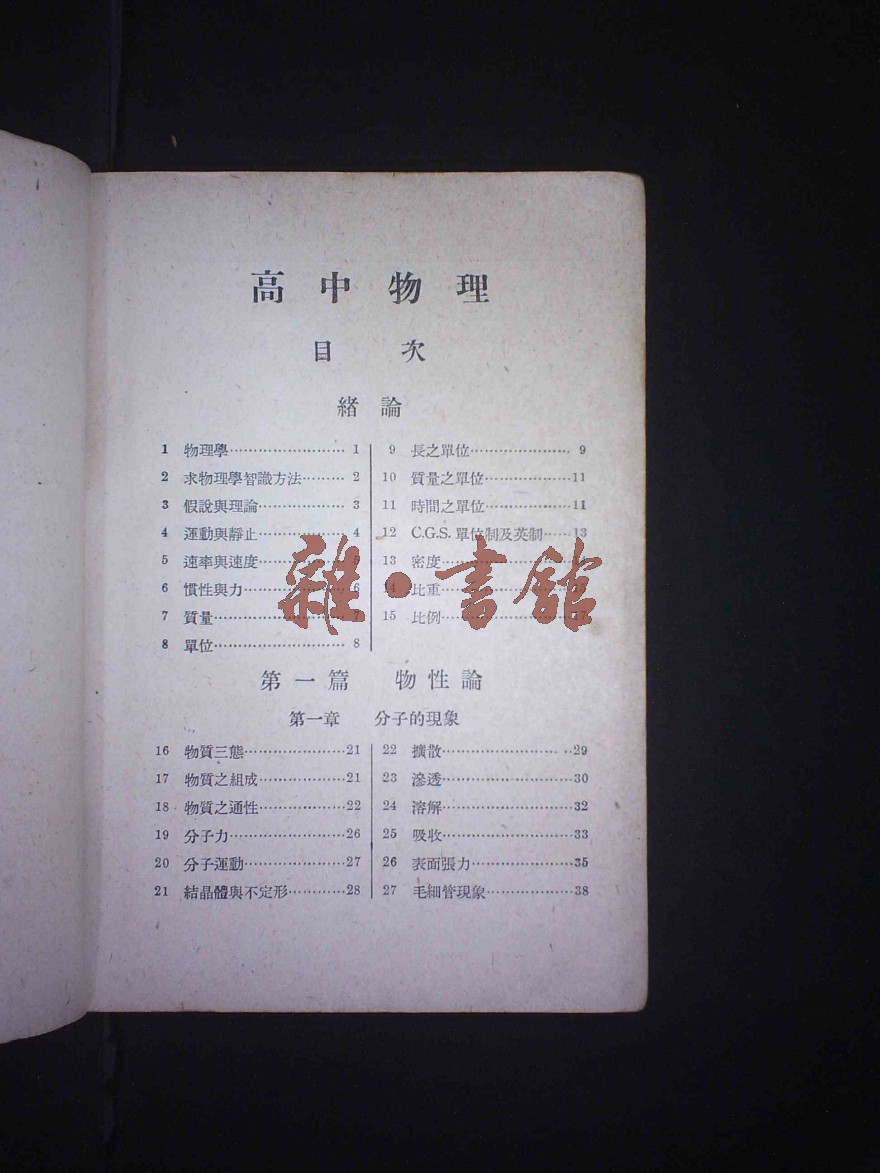 高中物理
目次
緒論
1 物理學……………………1
2 求物理學智識方法………2
3 假說與理論………………3
4 運動與靜止………………4
5 速率與速度………………5
6 慣性與力…………………6
7 質量………………………7
8 單位………………………8
9 長之單位…………………9
10 質量之單位………………11
11 時間之單位………………11
12 C.G.S. 單位制及英制……13
13 密度………………………
14 比重………………………
15 比例………………………17
雜·書館
第一篇 物性論
第一章 分子的現象
16 物質三態…………………21
17 物質之組成………………21
18 物質之通性………………22
19 分子力……………………26
20 分子運動…………………27
21 結晶體與不定形…………28
22 擴散………………………29
23 滲透………………………30
24 溶解………………………32
25 吸收………………………33
26 表面張力…………………35
27 毛細管現象………………38